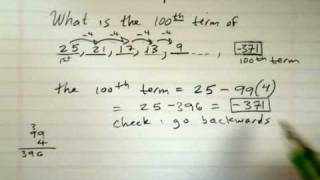 What is the 100th term of
-4 -4 -4 -4
25, 21, 17, 13, 9 ..., -371
1st 100th term
the 100th term = 25 - 99(4)
= 25 - 396 = -371
check: go backwards
3
99
4
396